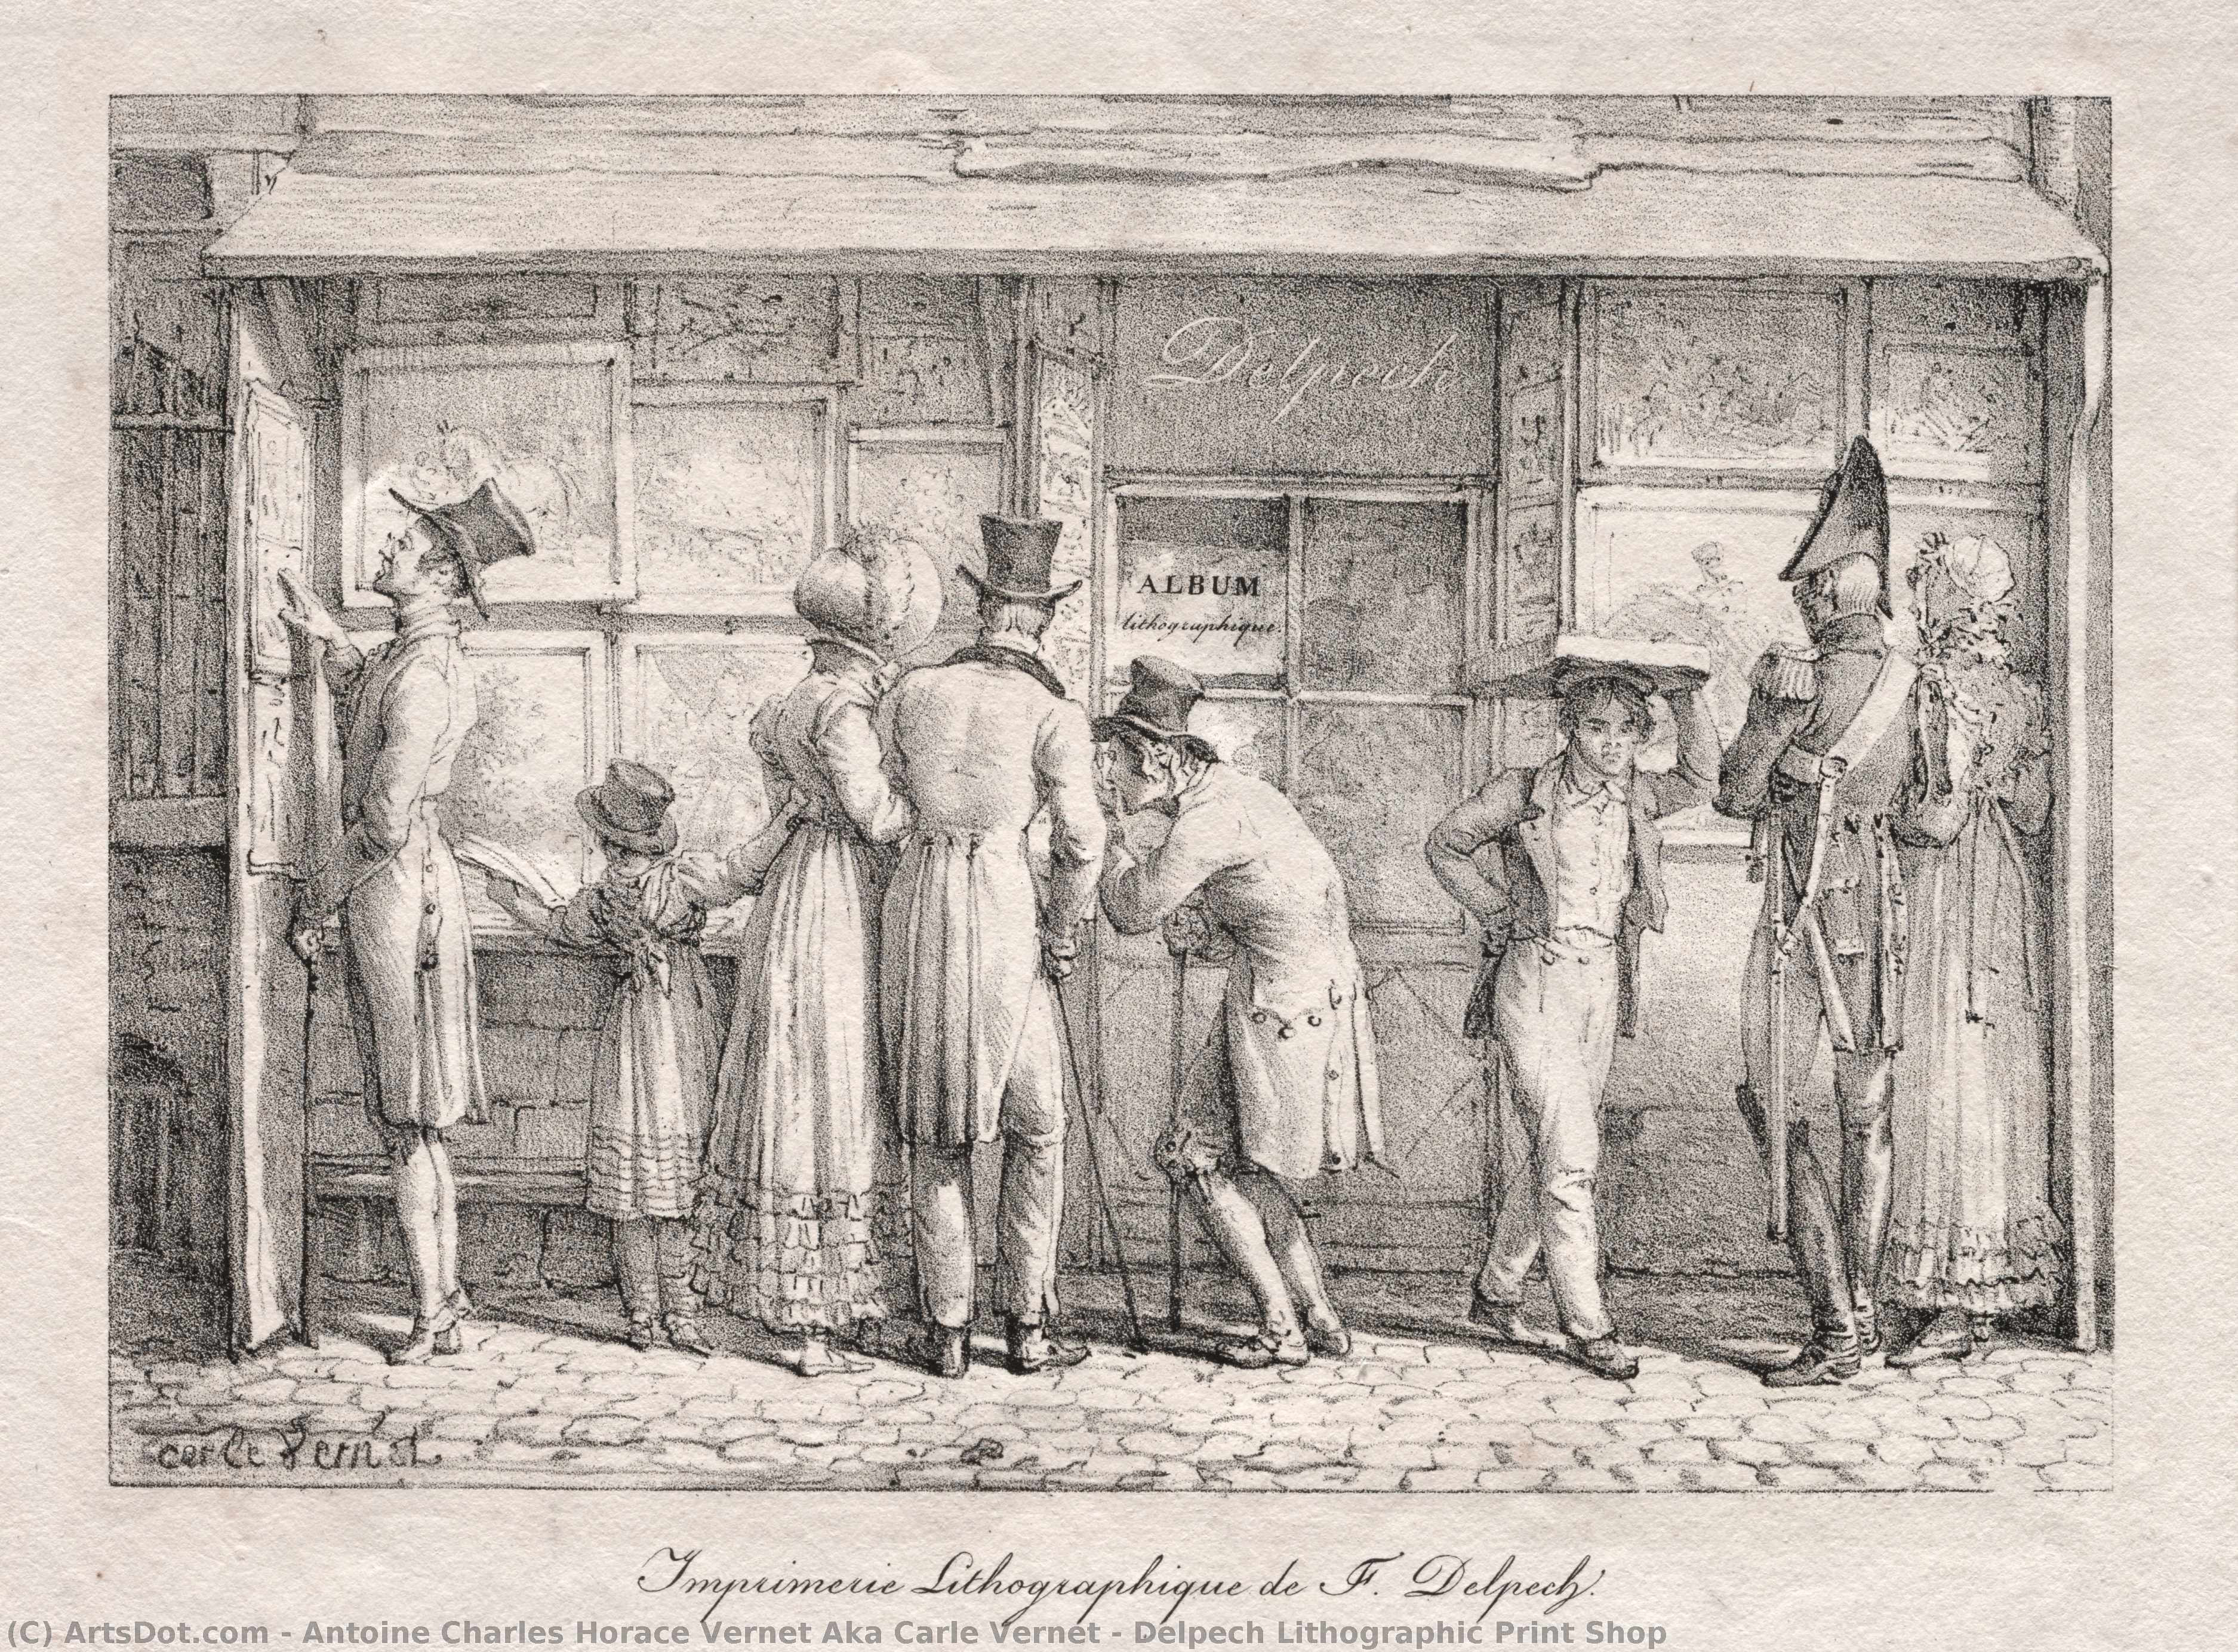 Delpech
ALBUM
lithographique.
carle Vernet
Imprimerie Lithographique de F. Delpech.
(C) ArtsDot.com - Antoine Charles Horace Vernet Aka Carle Vernet - Delpech Lithographic Print Shop